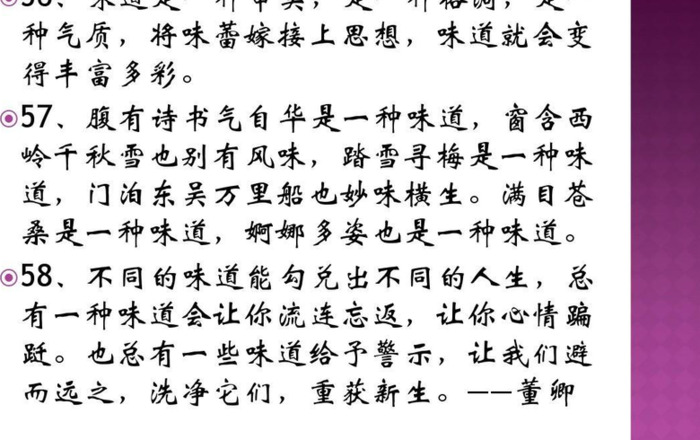 种气质，将味蕾嫁接上思想，味道就会变
得丰富多彩。
57、腹有诗书气自华是一种味道，窗含西
岭千秋雪也别有风味，踏雪寻梅是一种味
道，门泊东吴万里船也妙味横生。满目苍
桑是一种味道，婀娜多姿也是一种味道。
58、不同的味道能勾兑出不同的人生，总
有一种味道会让你流连忘返，让你心情蹁
跹。也总有一些味道给予警示，让我们避
而远之，洗净它们，重获新生。——董卿